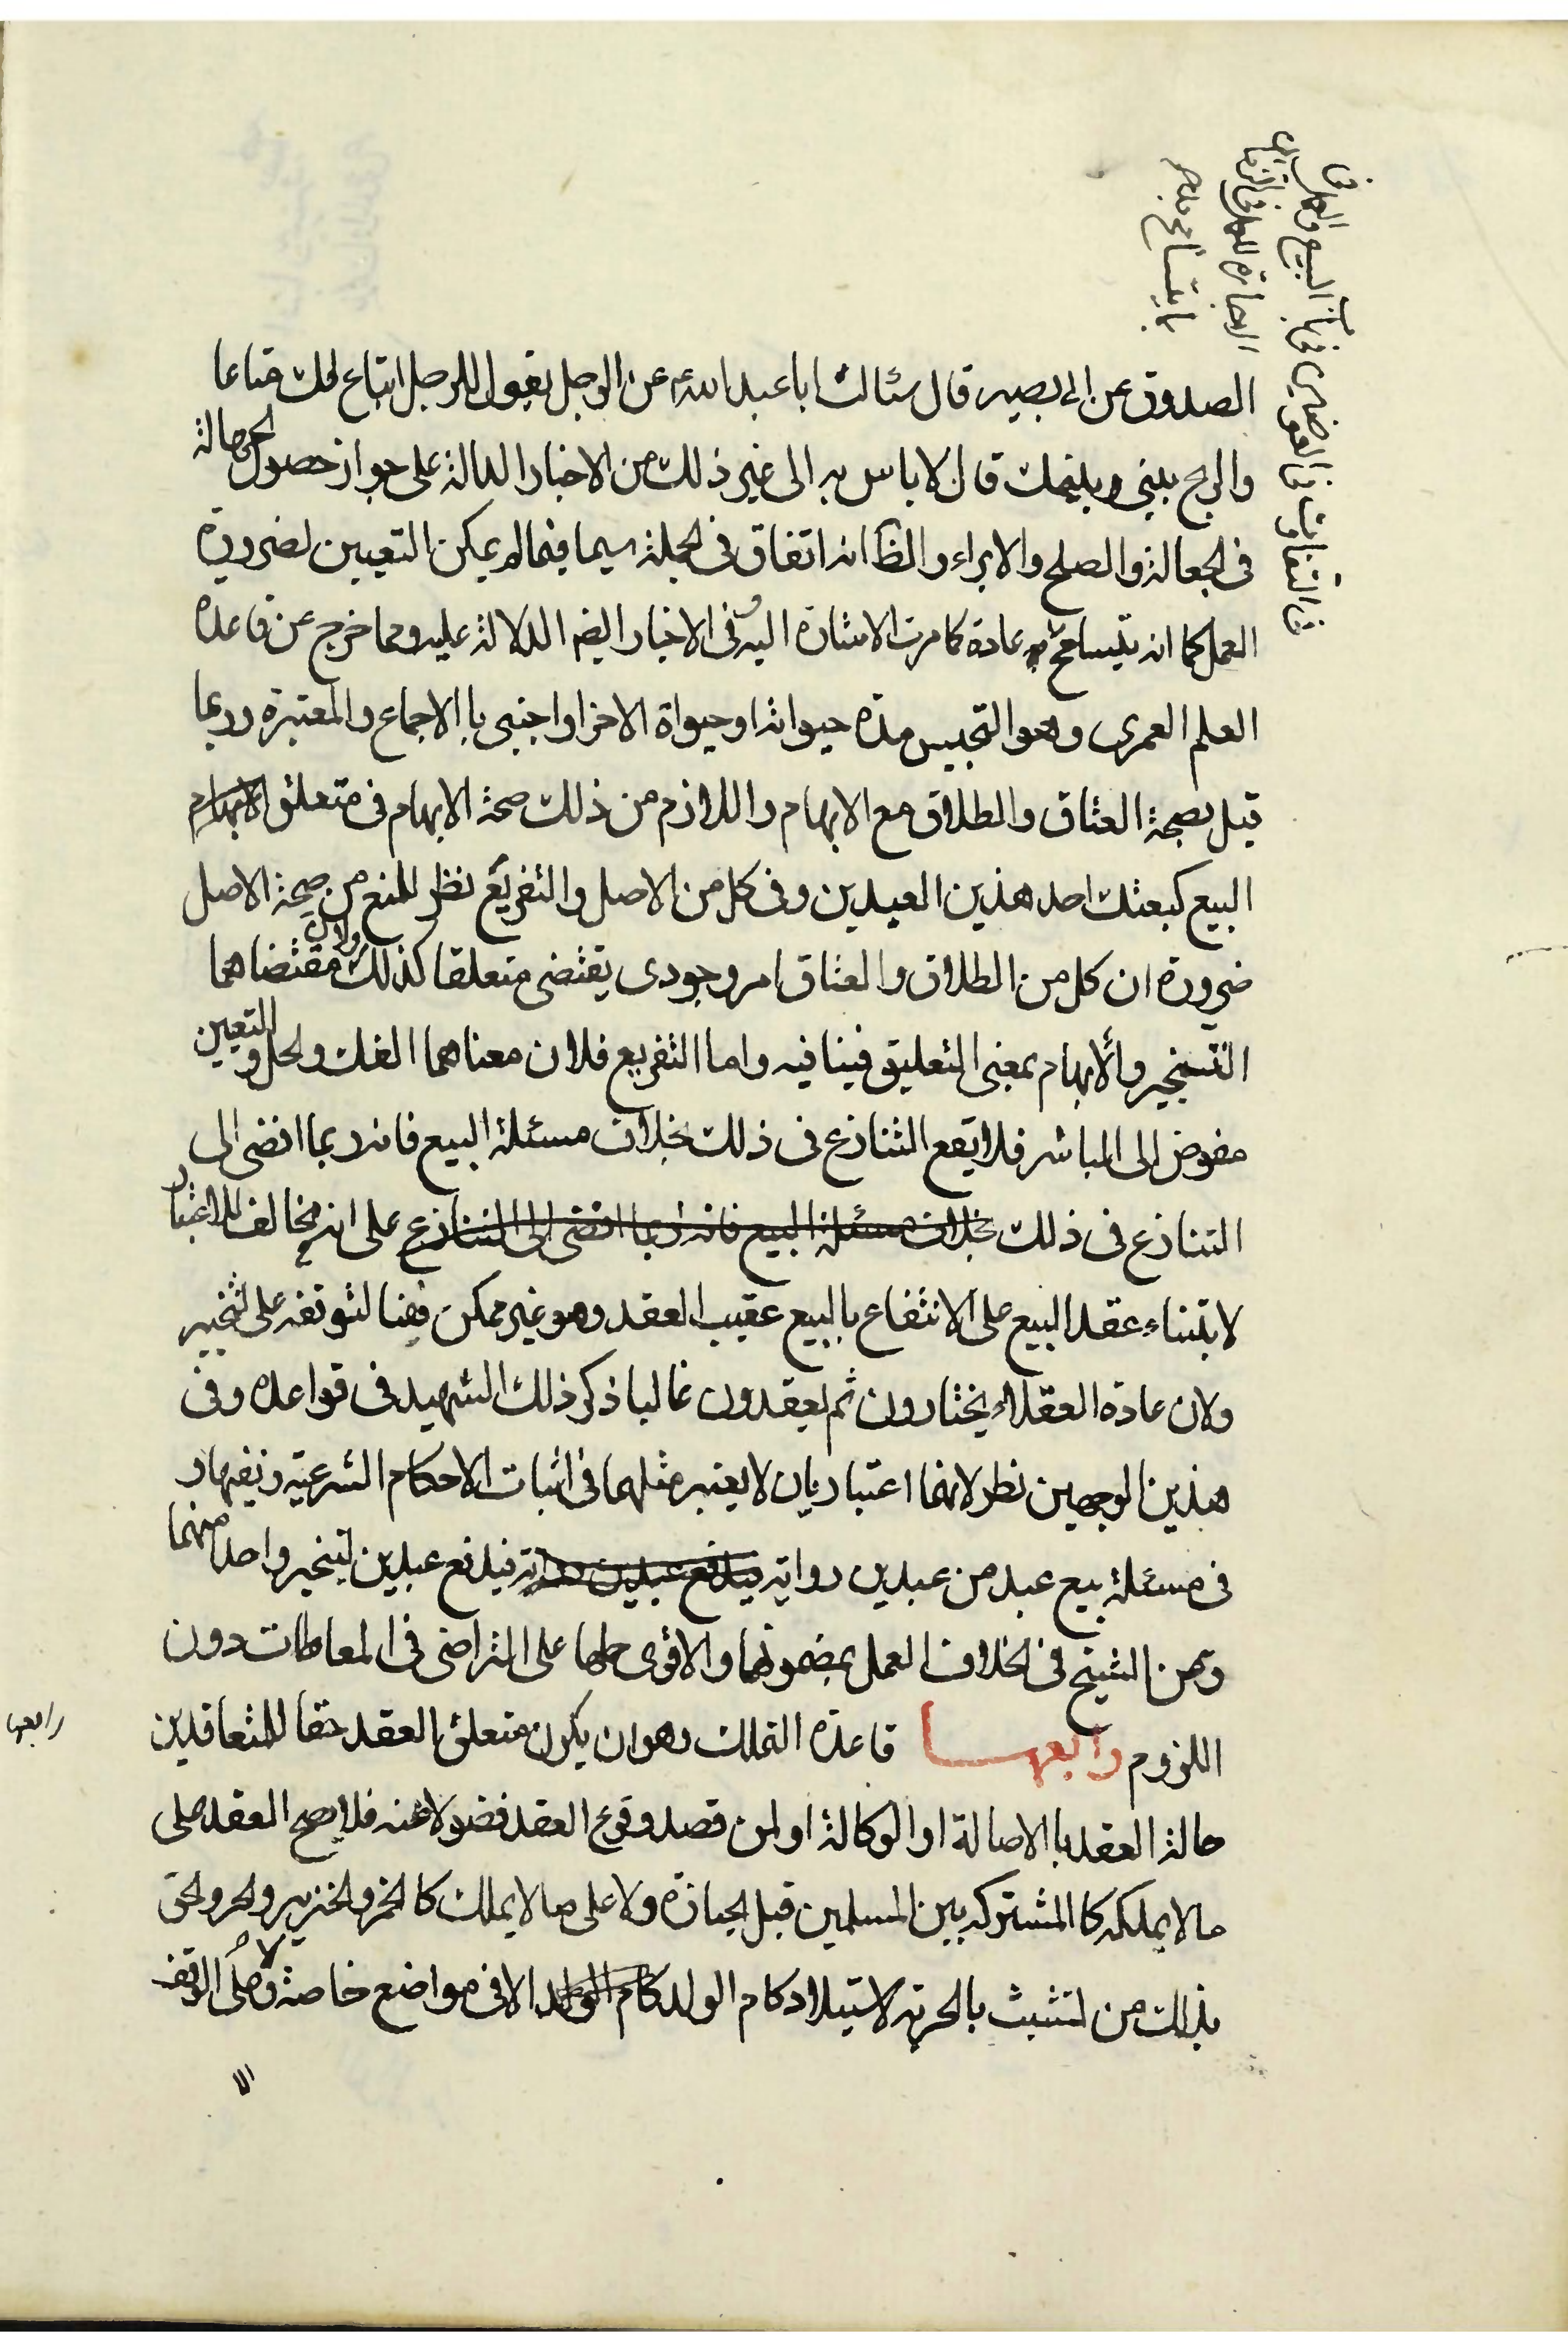 الصدوق عن ابى بصير قال سئالت ابا عبد الله ع عن الرجل يقول للرجل ابتاع لك متاعا
والربح بينى وبينك قال لا باس به الى غير ذلك من الاخبار الدالة على جواز حصول الجهالة
فى الجعالة والصلح والابراء والظ انه اتفاق فى الجملة سيما فيما لم يمكن التعيين لضرورة
العمل كما انه يتسامح عادة كما مرت الاشارة اليه وفى الاخبار ايضا الدلالة عليه ومما خرج عن قاعدة
العلم العمرى وهو التحبيس مدة حيواته او حيواة الاخر او اجنبى با الاجماع والمعتبرة وربما
قيل بصحة العتاق والطلاق مع الابهام واللازم من ذلك صحة الابهام فى متعلق
البيع كبعتك احد هذين العبدين وفى كل من الاصل والتفريع نظر للمنع من صحة الاصل
ضرورة ان كل من الطلاق والعتاق امر وجودى يقتضى متعلقا كذلك ولان مقتضاهما
التنجيز والابهام بمعنى التعليق فينافيه واما التفريع فلان معناهما الفك والحل والتعيين
مفوض الى المباشر فلا يقع التنازع فى ذلك بخلاف مسئلة البيع فانه ربما افضى الى
التنازع فى ذلك بخلاف مسئلة البيع فانه ربما افضى الى التنازع على انه مخالف للاعتبار
لابتناء عقد البيع على الانتفاع بالبيع عقيب العقد وهو غير ممكن هنا لتوقفه على تخيير
ولان عادة العقلاء يختارون ثم يعقدون غالبا ذكر ذلك الشهيد فى قواعده وفى
هذين الوجهين نظر لانهما اعتباريان لا يعتبر مثلهما فى اثبات الاحكام الشرعية ونفيها و
فى مسئلة بيع عبد من عبدين رواية فيدفع عبدين رواية فيدفع عبدين ليتخير واحد منهما
وعن الشيخ فى الخلاف العمل بمضمونها والاقوى حملها على التراضى فى المعاطات دون
اللزوم رابعها قاعدة التملك وهو ان يكون متعلق العقد حقا للمتعاقدين
رابعها
حالة العقد با الاصالة او الوكالة او لمن قصد وقوع العقد فضولا عنه فلا يصح العقد على
ما لا يملكه كا المشتركه بين المسلمين قبل الحيازة ولا على ما لا يملك كا الخمر والخنزير والحر والحق
بذلك من تشبث بالحرية لاستيلاد كام الولد الا فى مواضع خاصة ولا على الوقف